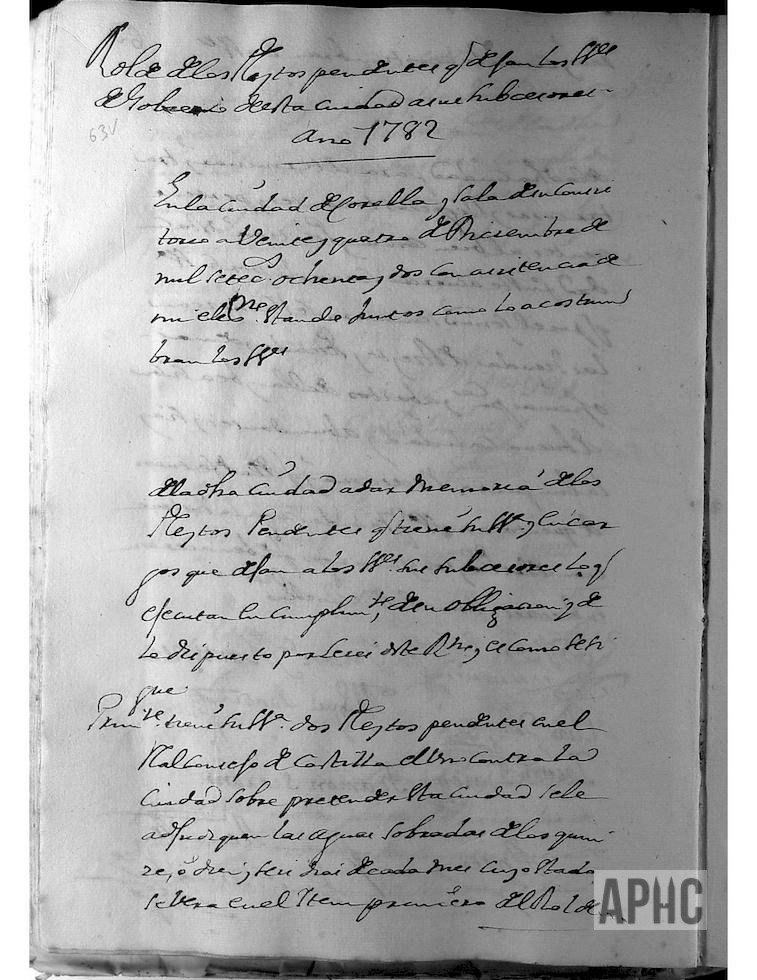 Rolde de los Pleytos pendientes q.e dejan los SS.res
de Gobierno desta ciudad a sus subcesores
ano 1782
63V
En la ciudad de Corella y sala de su Consis
torio a Veinte y quatro de Diciembre de
mil setec.s ochenta y dos con asistencia de
mi el ess.no estando juntos como lo acostum
bran los SS.res
de la dha ciudad a dar memoria de los
Pleytos Pendientes q.e tiene su SS.a y encar
gos que dejan a los SS.res sus subcesores lo q.e
ejecutan en cumplim.te de su obligacion y de
lo dispuesto por Leies deste R.no y es como se si
gue
Prim.te tiene su SS.a dos Pleytos pendientes en el
R.l Consejo de Castilla el Uno contra la
Ciudad sobre pretender esta ciudad se le
adjudiquen las aguas sobradas de los quin
ze, o diez y seis dias de cada mes cuyo estado
se vera en el Item primero del Rolde
APHC